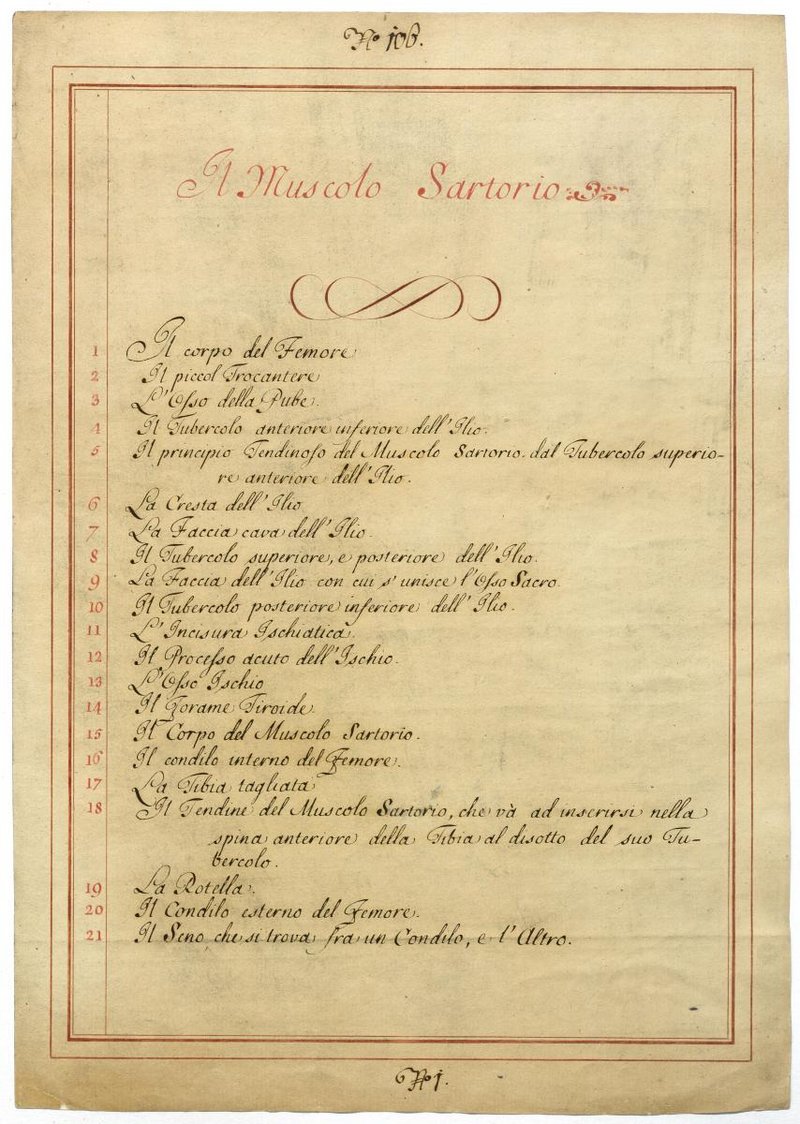 No 106.
Il Muscolo Sartorio
1 Il corpo del Femore
2 Il piccol Trocantere
3 L'Osso della Pube.
4 Il Tubercolo anteriore inferiore dell'Ilio.
5 Il principio Tendinoso del Muscolo Sartorio. dal Tubercolo superio-
re anteriore dell'Ilio.
6 La Cresta dell'Ilio
7 La Faccia cava dell'Ilio.
8 Il Tubercolo superiore, e posteriore dell'Ilio.
9 La Faccia dell'Ilio con cui s'unisce l'Osso Sacro.
10 Il Tubercolo posteriore inferiore dell'Ilio.
11 L'Incisura Ischiatica.
12 Il Processo acuto dell'Ischio.
13 L'Osso Ischio
14 Il Forame Tiroide.
15 Il Corpo del Muscolo Sartorio.
16 Il condilo interno del Femore.
17 La Tibia tagliata
18 Il Tendine del Muscolo Sartorio, che và ad inserirsi nella
spina anteriore della Tibia al disotto del suo Tu-
bercolo.
19 La Rotella.
20 Il Condilo esterno del Femore.
21 Il Seno, che si trova fra un Condilo, e l'Altro.
No 1.